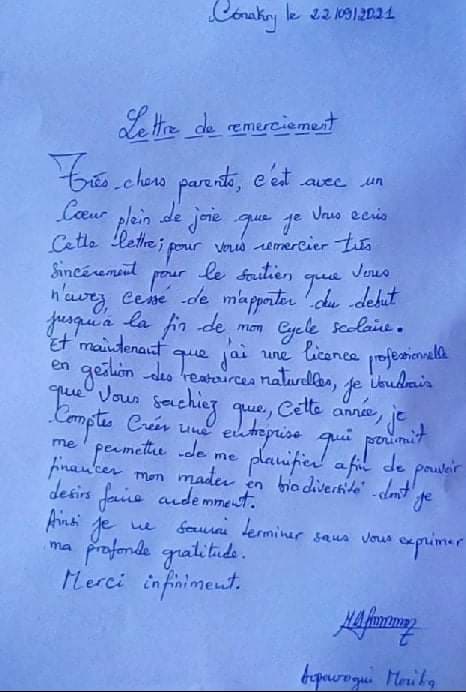 Conakry le 22/09/2021
Lettre de remerciement
Très chers parents, c'est avec un
Cœur plein de joie que je vous ecris
Cette lettre; pour vous remercier très
sincèrement pour le soutien que vous
n'avez, cessé de m'apporter du debut
jusqu'à la fin de mon cycle scolaire.
Et maintenant que j'ai une licence professionnelle
en gestion des ressources naturelles, je voudrais
que vous sachiez que, cette année, je
Comptes Créer une entreprise qui pourrait
me permettre de me planifier afin de pouvoir
financer mon master en biodiversité dont je
desirs faire ardemment.
Ainsi je ne saurai terminer sans vous exprimer
ma profonde gratitude.
Merci infiniment.
Moriba